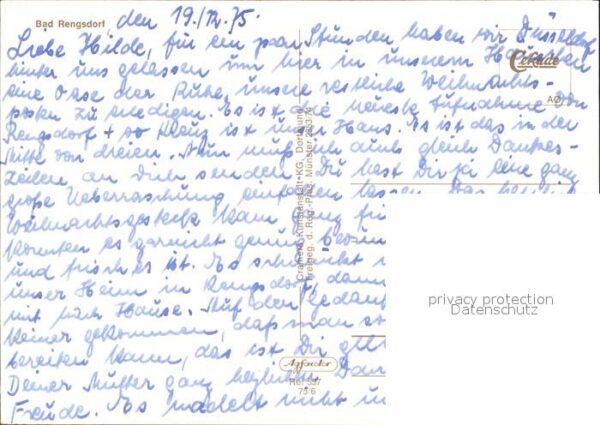 Bad Rengsdorf
den 19./12.75.
Liebe Hilde, für ein paar Stunden haben wir Düsseldorf
hinter uns gelassen um hier in unserem Häuschen
eine Oase der Ruhe, unsere restliche Weihnachts-
posten zu erledigen. Es ist die neueste Aufnahme von
Rengsdorf + so Kreuz ist unser Haus. Es ist das in der
Mitte von dreien. Nun muß ich auch gleich Dankes-
Zeilen an Dich senden. Du hast Dir ja eine ganz
große Ueberraschung einfallen lassen. Das
Weihnachtsgesteck kam ganz
konnten es garnicht genug
und frisch es ist. Es schmückt
unser Heim in Rengsdorf, dann
mit nach Hause. Auf den Gedank
keiner gekommen, daß man so
bereiten kann, das ist Dir
Deiner Mutter ganz herzlichen Dan
Freude. Es nadelt nicht
Cekade
AO
Cramers Kunstanstalt KG, Dortmund
Freigeg. d. Reg.-Präs. Münster
Re 537
75/6
privacy protection
Datenschutz